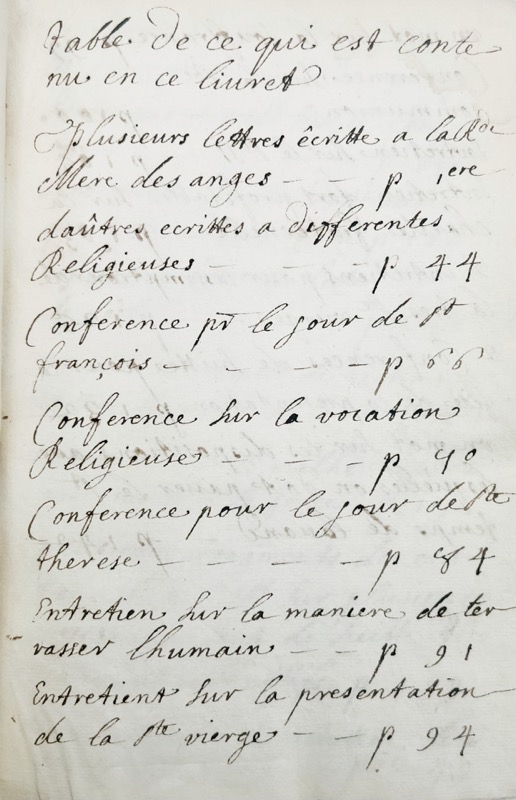 table de ce qui est conte
nu en ce liuret
Plusieurs lettres êcritte a la Rde
Mere des anges - - p 1ere
daûtres ecrittes a differentes
Religieuses - - - p 44
Conference pr le jour de st
françois - - - - p 66
Conference sur la vocation
Religieuse - - - p 70
Conference pour le jour de ste
therese - - - - p 84
Entretien sur la maniere de ter
rasser lhumain - - p 91
Entretient sur la presentation
de la ste vierge - - p 94